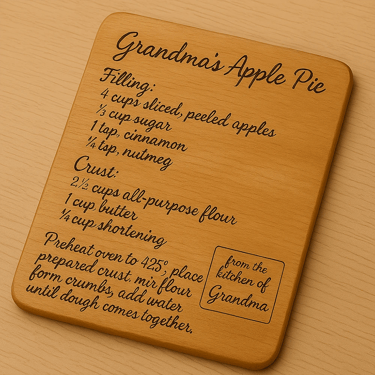 Grandma's Apple Pie
Filling:
4 cups sliced, peeled apples
⅓ cup sugar
1 tsp, cinnamon
¼ tsp, nutmeg
Crust:
2½ cups all-purpose flour
1 cup butter
¼ cup shortening
Preheat oven to 425°, place
prepared crust. mix flour
form crumbs, add water
until dough comes together.
from the
kitchen of
Grandma